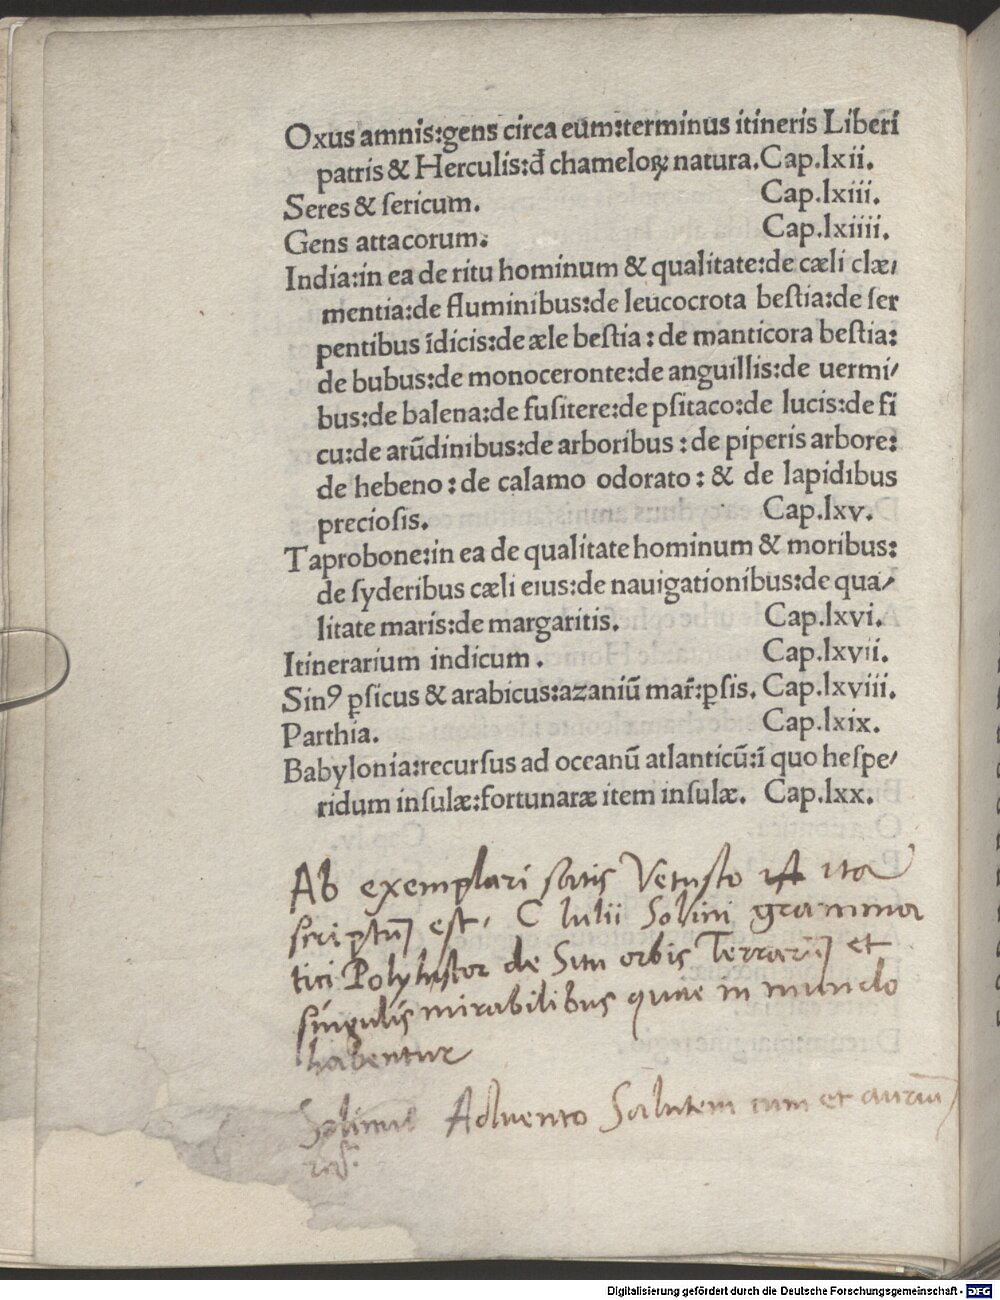 Oxus amnis:gens circa eūm:terminus itineris Liberi
patris & Herculis:đ chameloꝝ natura.Cap.lxii.
Seres & sericum. Cap.lxiii.
Gens attacorum. Cap.lxiiii.
India:in ea de ritu hominum & qualitate:de cæli clæ/
mentia:de fluminibus:de leucocrota bestia:de ser
pentibus īdicis:de æle bestia: de manticora bestia:
de bubus:de monoceronte:de anguillis:de uermi/
bus:de balena:de fusitere:de psitaco:de lucis:de fi
cu:de arūdinibus:de arboribus : de piperis arbore:
de hebeno: de calamo odorato: & de lapidibus
preciosis. Cap.lxv.
Taprobone:in ea de qualitate hominum & moribus:
de syderibus cæli eius:de nauigationibus:de qua/
litate maris:de margaritis. Cap.lxvi.
Itinerarium indicum. Cap.lxvii.
Sinꝰ ꝑsicus & arabicus:azaniū mar̄:ꝑsis. Cap.lxviii.
Parthia. Cap.lxix.
Babylonia:recursus ad oceanū atlanticū:ī quo hespe/
ridum insulæ:fortunaræ item insulæ. Cap.lxx.
Ab exemplari satis Vetusto ita
scriptū est, C Iulii Solini gramma
tici Polyhistor de Situ orbis Terrarū et
singulis mirabilibus quae in mundo
habentur
Solinus Aduento Salutem cum et
Digitalisierung gefördert durch die Deutsche Forschungsgemeinschaft - DFG